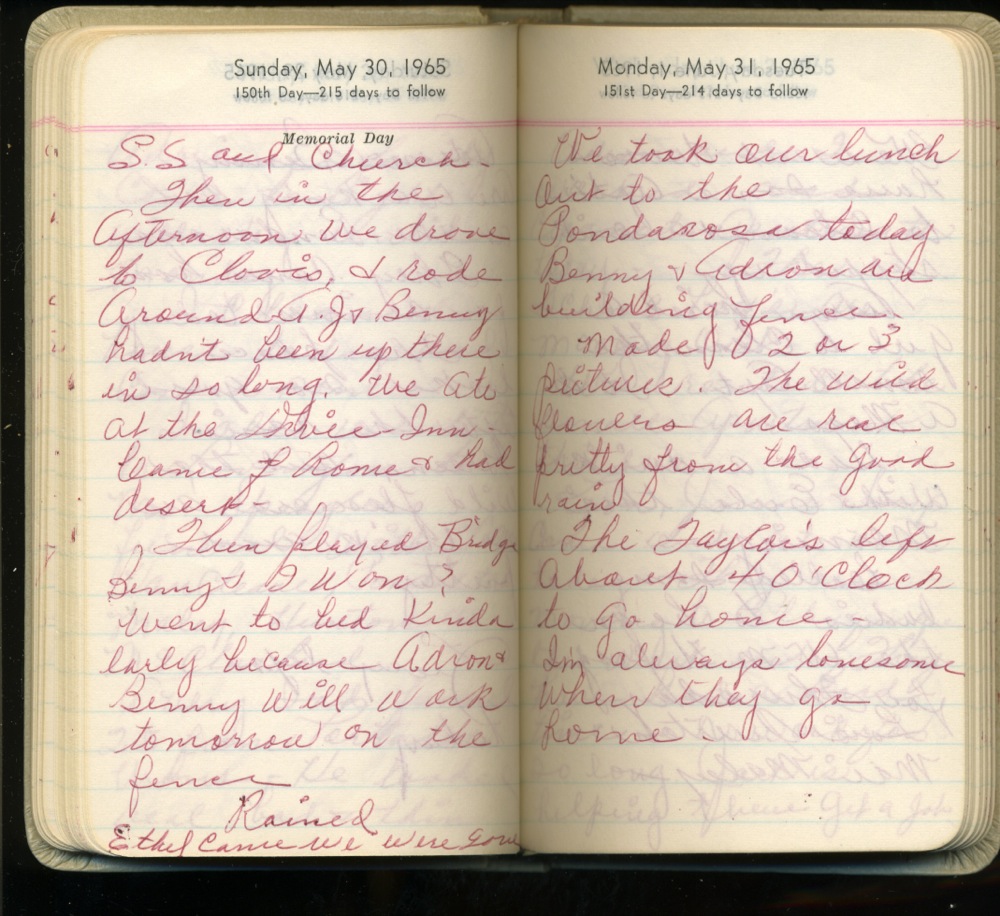 Sunday, May 30, 1965
150th Day—215 days to follow
Memorial Day
S.S and Church.
Then in the
Afternoon we drove
to Clovis, & rode
Around. A.J & Benny
hadn't been up there
in so long. We ate
at the Drive-Inn-
Came Home & had
desert-
Then played Bridge
Benny & I won?
Went to bed Kinda
early because Adron &
Benny will work
tomorrow on the
fence
Rained
Ethel came we were gone
Monday, May 31, 1965
151st Day—214 days to follow
We took our lunch
Out to the
Pondarosa today
Benny & Adron are
building fence.
Made 2 or 3
pictures. The wild
flowers are real
pretty from the good
rain
The Taylor's left
About 4 O'Clock
to go home-
I'm always lonesome
when they go
home.